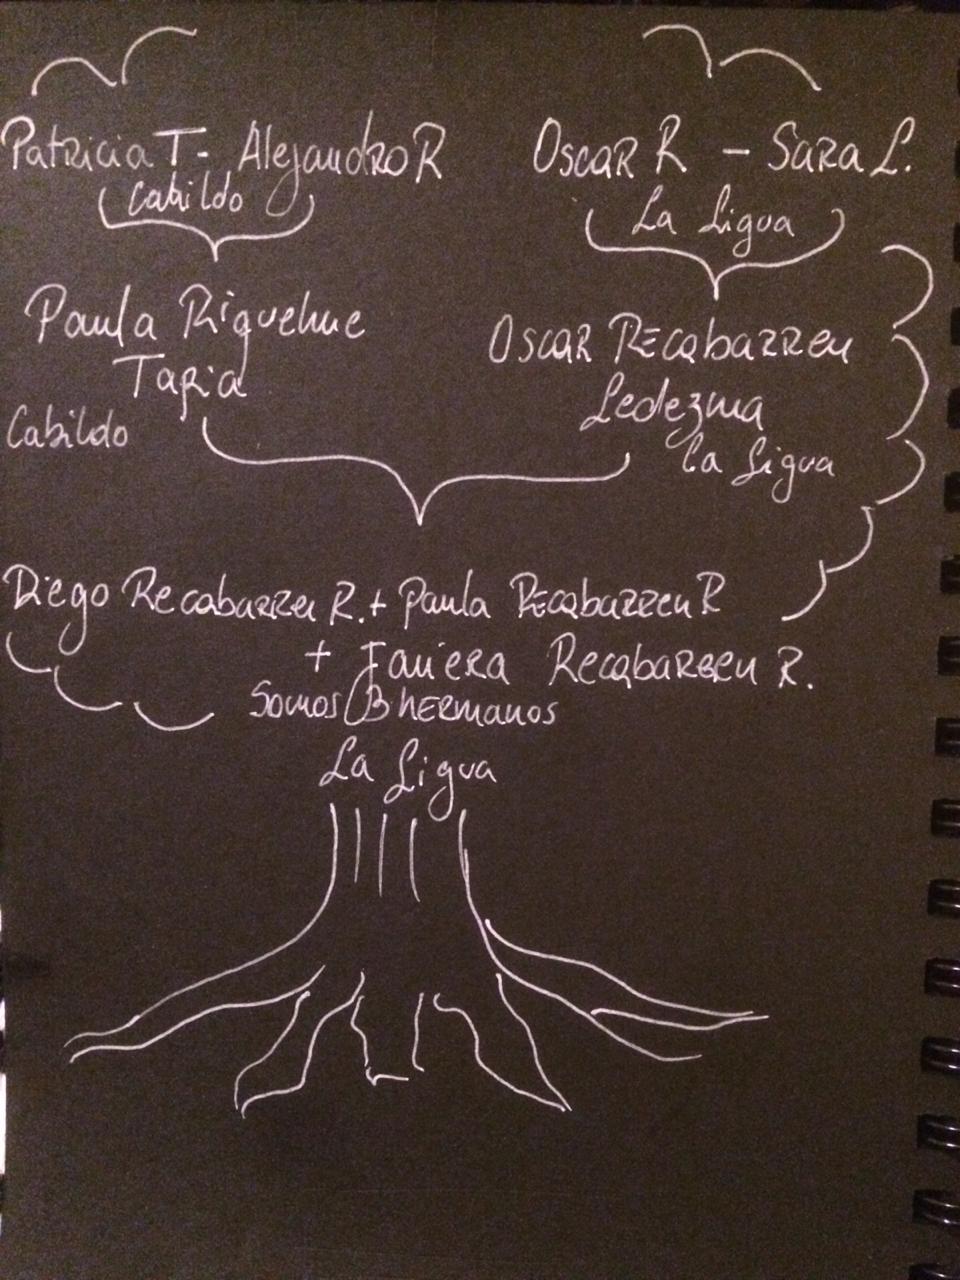 Patricia T - Alejandro R
Cabildo
Oscar R - Sara L.
La Ligua
Paula Riquelme
Tapia
Cabildo
Oscar Recabarren
Ledezma
La Ligua
Diego Recabarren R. + Paula Recabarren R
+ Javiera Recabarren R.
Somos 3 hermanos
La Ligua